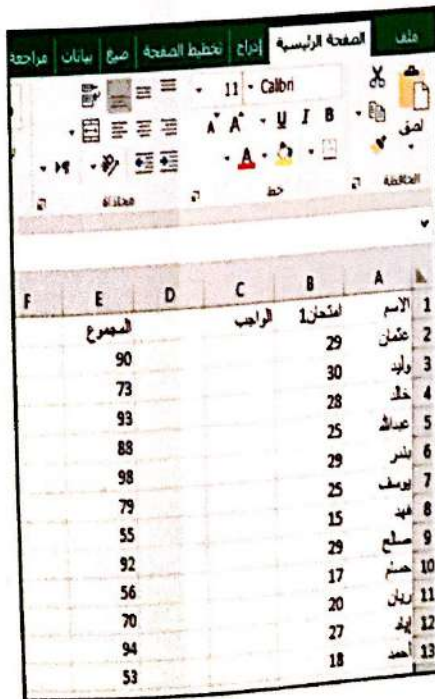 ملف الصفحة الرئيسية إدراج تخطيط الصفحة صيغ بيانات مراجعة
Calibri 11
لصق
B I U A A
A
الحافظة خط محاذاة
A B C D E F
1 الاسم امتحان1 الواجب المجموع
2 عثمان 29 90
3 وليد 30 73
4 خالد 28 93
5 عبدالله 25 88
6 بندر 29 98
7 يوسف 25 79
8 فهد 15 55
9 صالح 29 92
10 حسام 17 56
11 ريان 20 70
12 إياد 27 94
13 أحمد 18 53